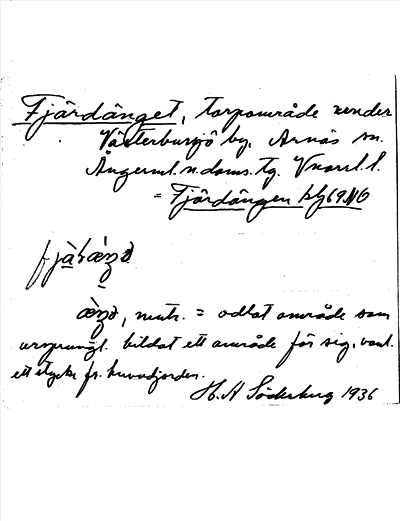 Fjärdänget, torpområde under
Västerbursjö by, Arnäs sn.
Ångerml. n. doms. tg. Vnorrl. l.
= Fjärdängen blg 69 NO
fjä̀ɾæ̀ŋə
æ̀ŋə, neutr. = odlat område som
ursprungl. bildat ett område för sig, vanl.
ett stycke fr. huvudjorden.
H. A Söderberg 1936